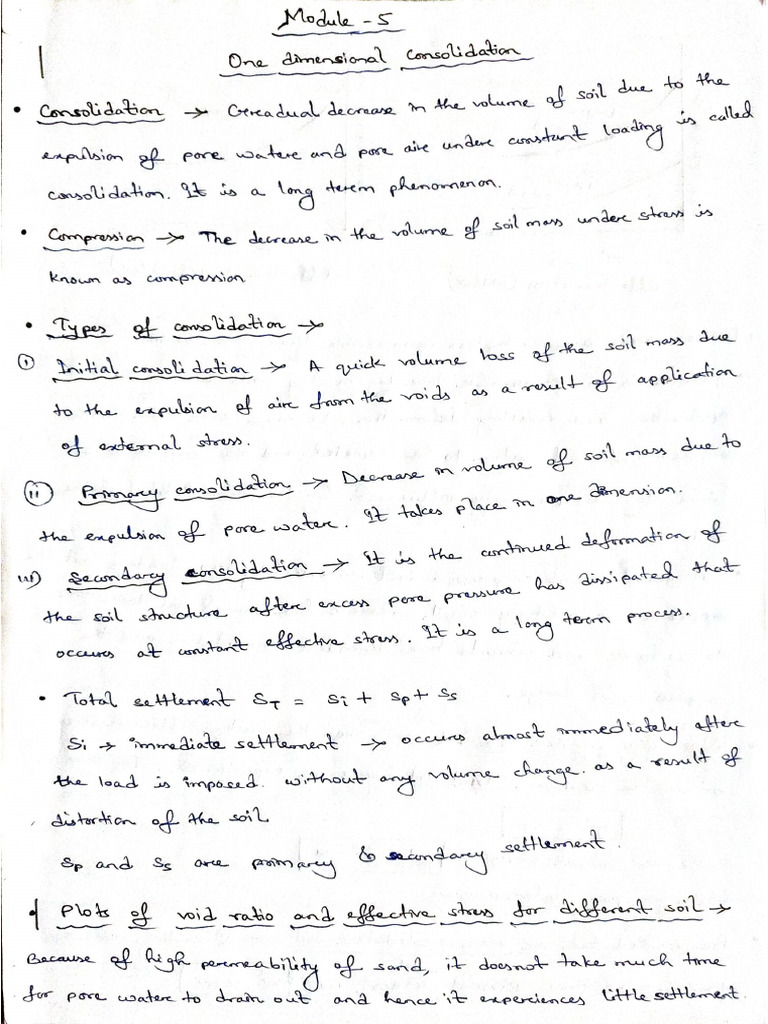 Module - 5
One dimensional consolidation
• Consolidation → Gereadual decrease in the volume of soil due to the
expulsion of pore watere and pore aire undere constant loading is called
consolidation. It is a long terem phenomenon.
• Compression → The decrease in the volume of soil mass undere stress is
known as compression
• Types of consolidation →
(i) Initial consolidation → A quick volume loss of the soil mass due
to the expulsion of aire from the voids as a result of application
of external stress.
(ii) Primary consolidation → Decrease in volume of soil mass due to
the expulsion of pore watere. It takes place in one dimension.
iii) Secondary consolidation → It is the continued deformation of
the soil structure aftere excess pore pressure has dissipated that
occures at constant effective stress. It is a long term process.
• Total settlement S_T = Si + Sp + Ss
Si → immediate settlement → occures almost immediately aftere
the load is imposed. without any volume change. as a result of
distortion of the soil
Sp and Ss are primarcy & secondarcy settlement.
• Plots of void ratio and effective stress for different soil →
Because of high permeability of sand, it doesnot take much time
for pore watere to drain out and hence it experiences little settlement.